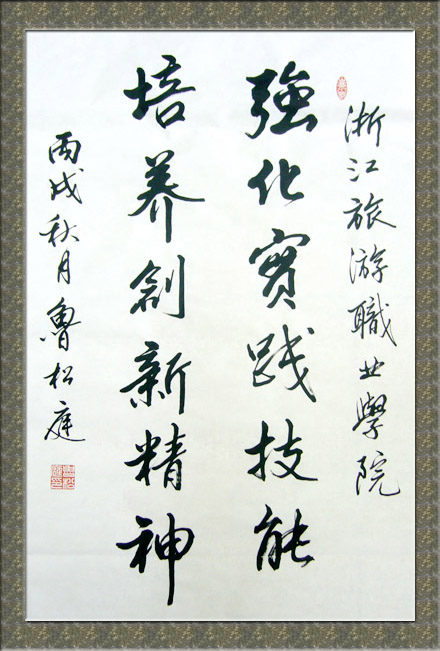 浙江旅游職业學院
強化实践技能
培养创新精神
丙戌秋月魯松庭